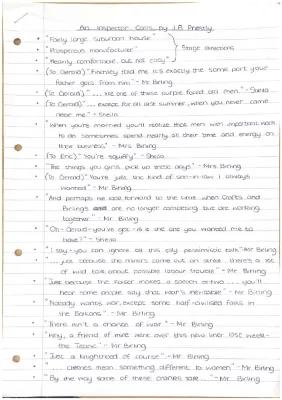 An Inspector Calls by J.B. Priestly
• "Fairly large suburban house"
• "Prosperous manufacturer"
Stage directions
• "Heavily comfortable, but not cosy"
• (To Gerald) "Finchley told me it's exactly the same port your
father gets from him" - Mr Birling
• (To Gerald) "... like one of these purple faced old men." - Sheila
• (To Gerald) "... except for all last summer, when you never came
near me" - Sheila
• "When you're married you'll realise that men with important work
to do sometimes spend nearly all their time and energy on
their business" - Mrs Birling
• (To Eric) "You're squiffy" - Sheila
• "The things you girls pick up these days" - Mrs Birling
• (To Gerald) "You're just the kind of son-in-law I always
wanted" - Mr Birling
• "And perhaps we look forward to the time when Crofts and
Birlings are no longer competing but are working
together" - Mr Birling
• "Oh - Gerald - you've got it - is it the one you wanted me to
have?" - Sheila
• "I say - you can ignore all this silly pessimistic talk" Mr Birling
• "... just because the miners came out on strike, there's a lot
of wild talk about possible labour trouble" - Mr Birling
• "Just because the Kaiser makes a speech or two ... you'll
hear some people say that war's inevitable" - Mr Birling
• "Nobody wants war, except some half-civilised folks in
the Balkans" - Mr Birling
• "There isn't a chance of war" - Mr Birling
• "Why, a friend of mine went over this new liner last week -
the Titanic" - Mr Birling
• "Just a knighthood of course" - Mr Birling
• "... clothes mean something different to women" - Mr Birling
• "By the way some of these cranks talk..." - Mr Birling